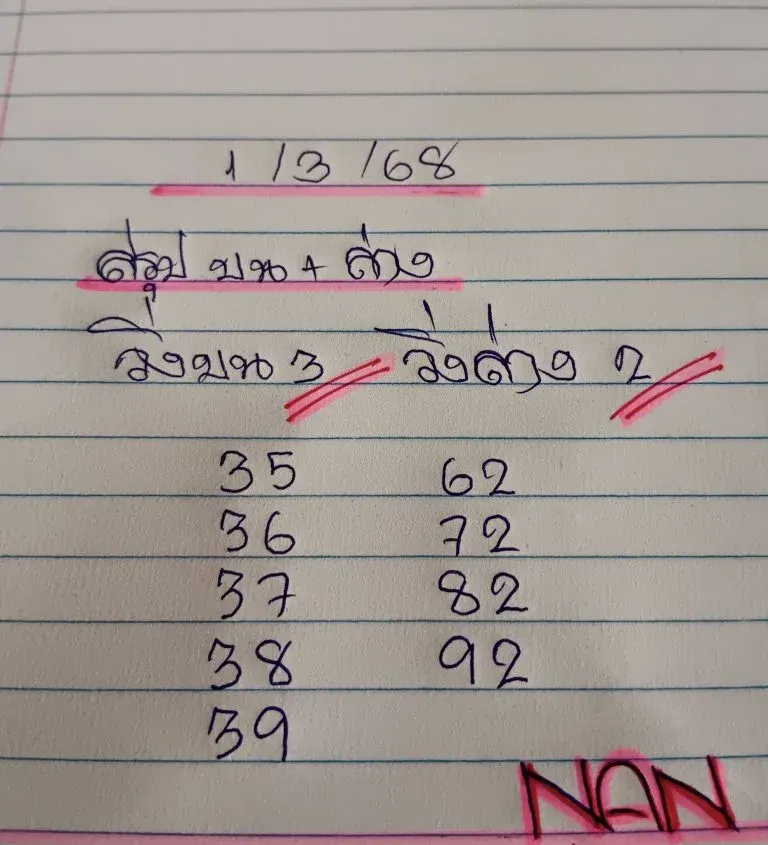 1/3/68
สรุป บน + ล่าง
วิ่งบน 3 วิ่งล่าง 2
35 62
36 72
37 82
38 92
39
NAN